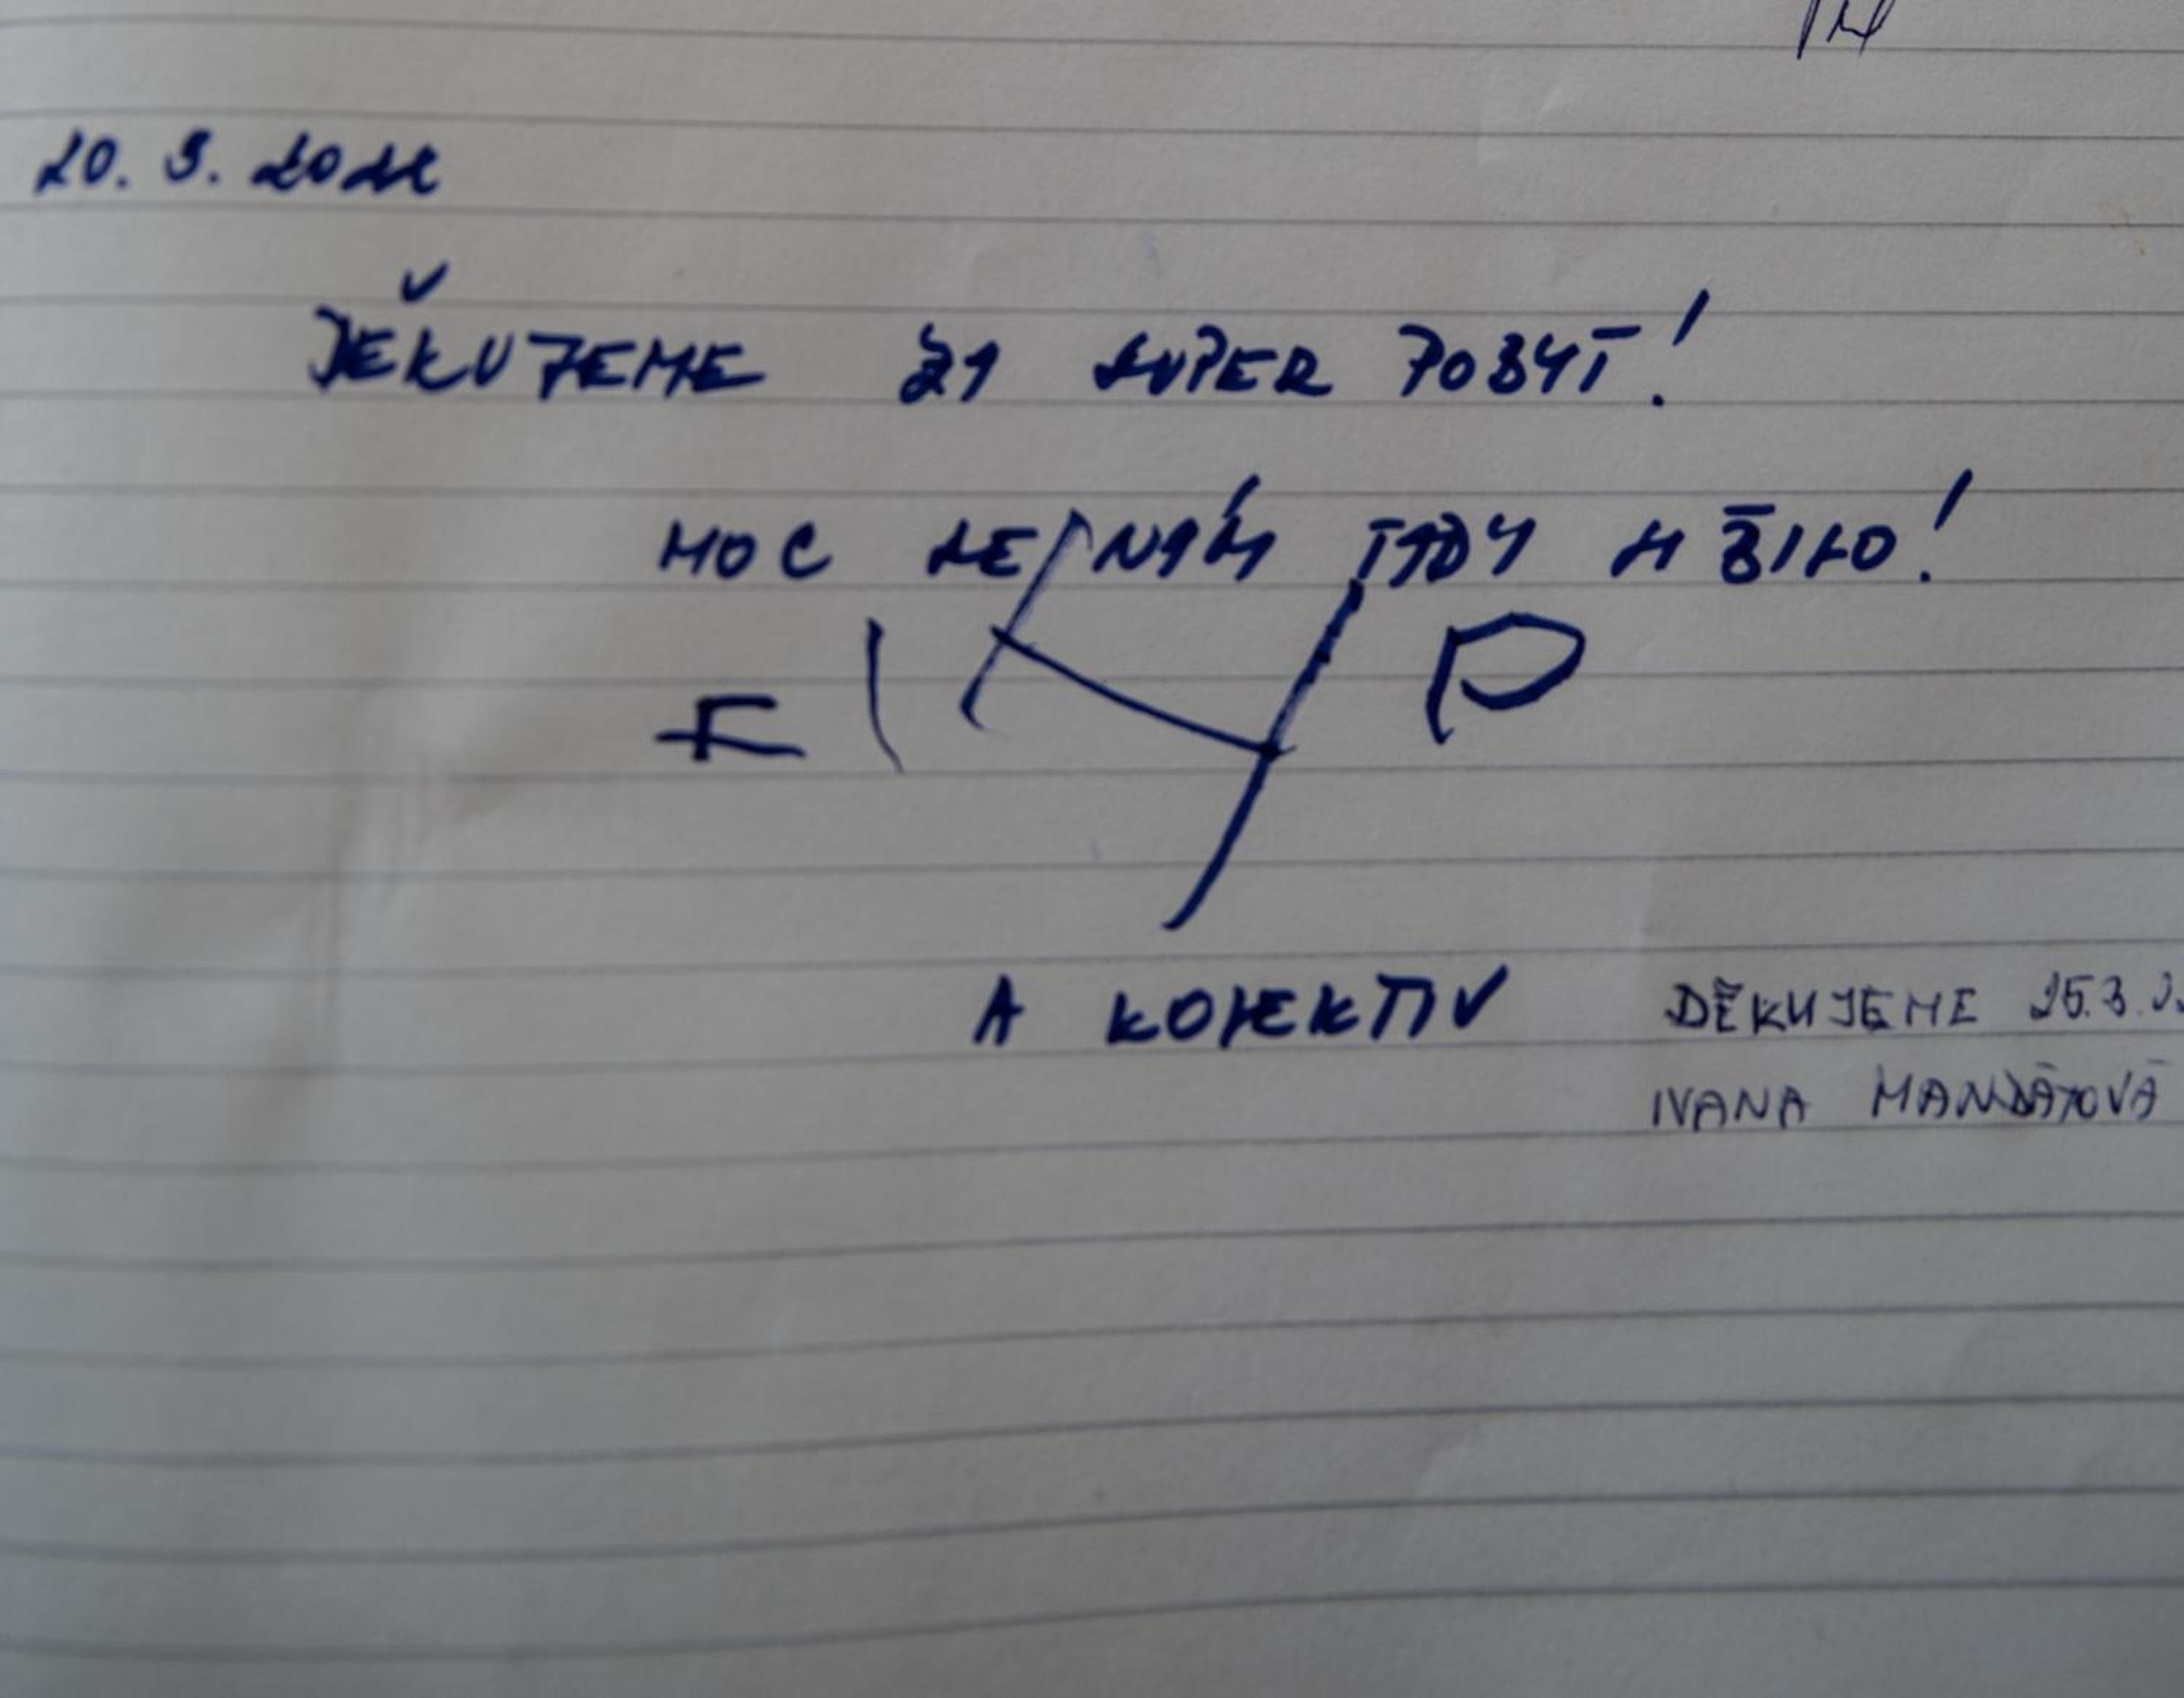 20. 3. 2022
DĚKUJEME ZA SUPER POBYT!
MOC SE NÁM TADY LÍBILO!
A KOLEKTIV
DĚKUJEME 25.3.
IVANA MANDÁTOVÁ